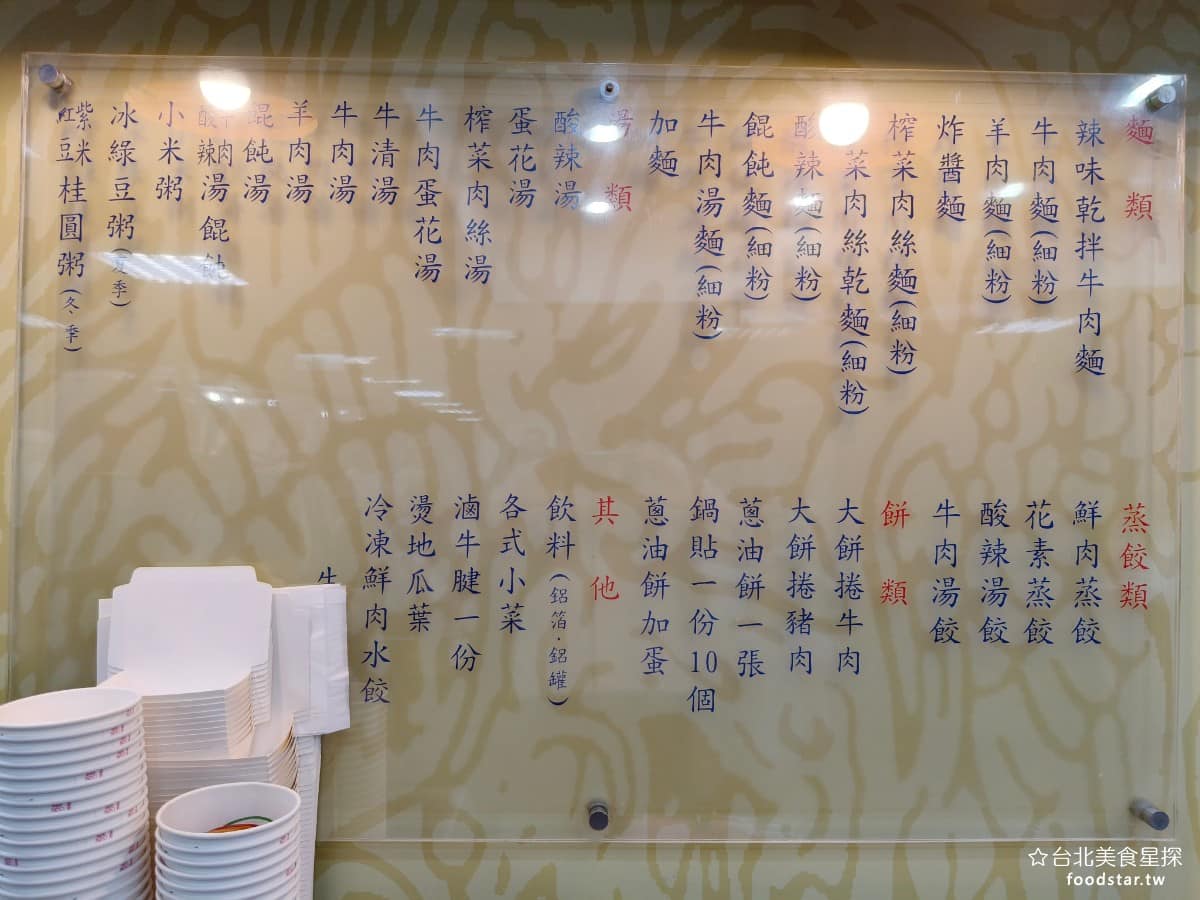 麵類
辣味乾拌牛肉麵
牛肉麵(細粉)
羊肉麵(細粉)
炸醬麵
榨菜肉絲麵(細粉)
菜肉絲乾麵(細粉)
酸辣麵(細粉)
餛飩麵(細粉)
牛肉湯麵(細粉)
加麵
湯類
酸辣湯
蛋花湯
榨菜肉絲湯
牛肉蛋花湯
牛清湯
牛肉湯
羊肉湯
餛飩湯
牛肉酸辣湯餛飩
小米粥
冰綠豆粥(夏季)
紫米紅豆桂圓粥(冬季)
蒸餃類
鮮肉蒸餃
花素蒸餃
酸辣湯餃
牛肉湯餃
餅類
大餅捲牛肉
大餅捲豬肉
蔥油餅一張
鍋貼一份10個
蔥油餅加蛋
其他
飲料(鋁箔·鋁罐)
各式小菜
滷牛腱一份
燙地瓜葉
冷凍鮮肉水餃
牛
☆台北美食星探
foodstar.tw